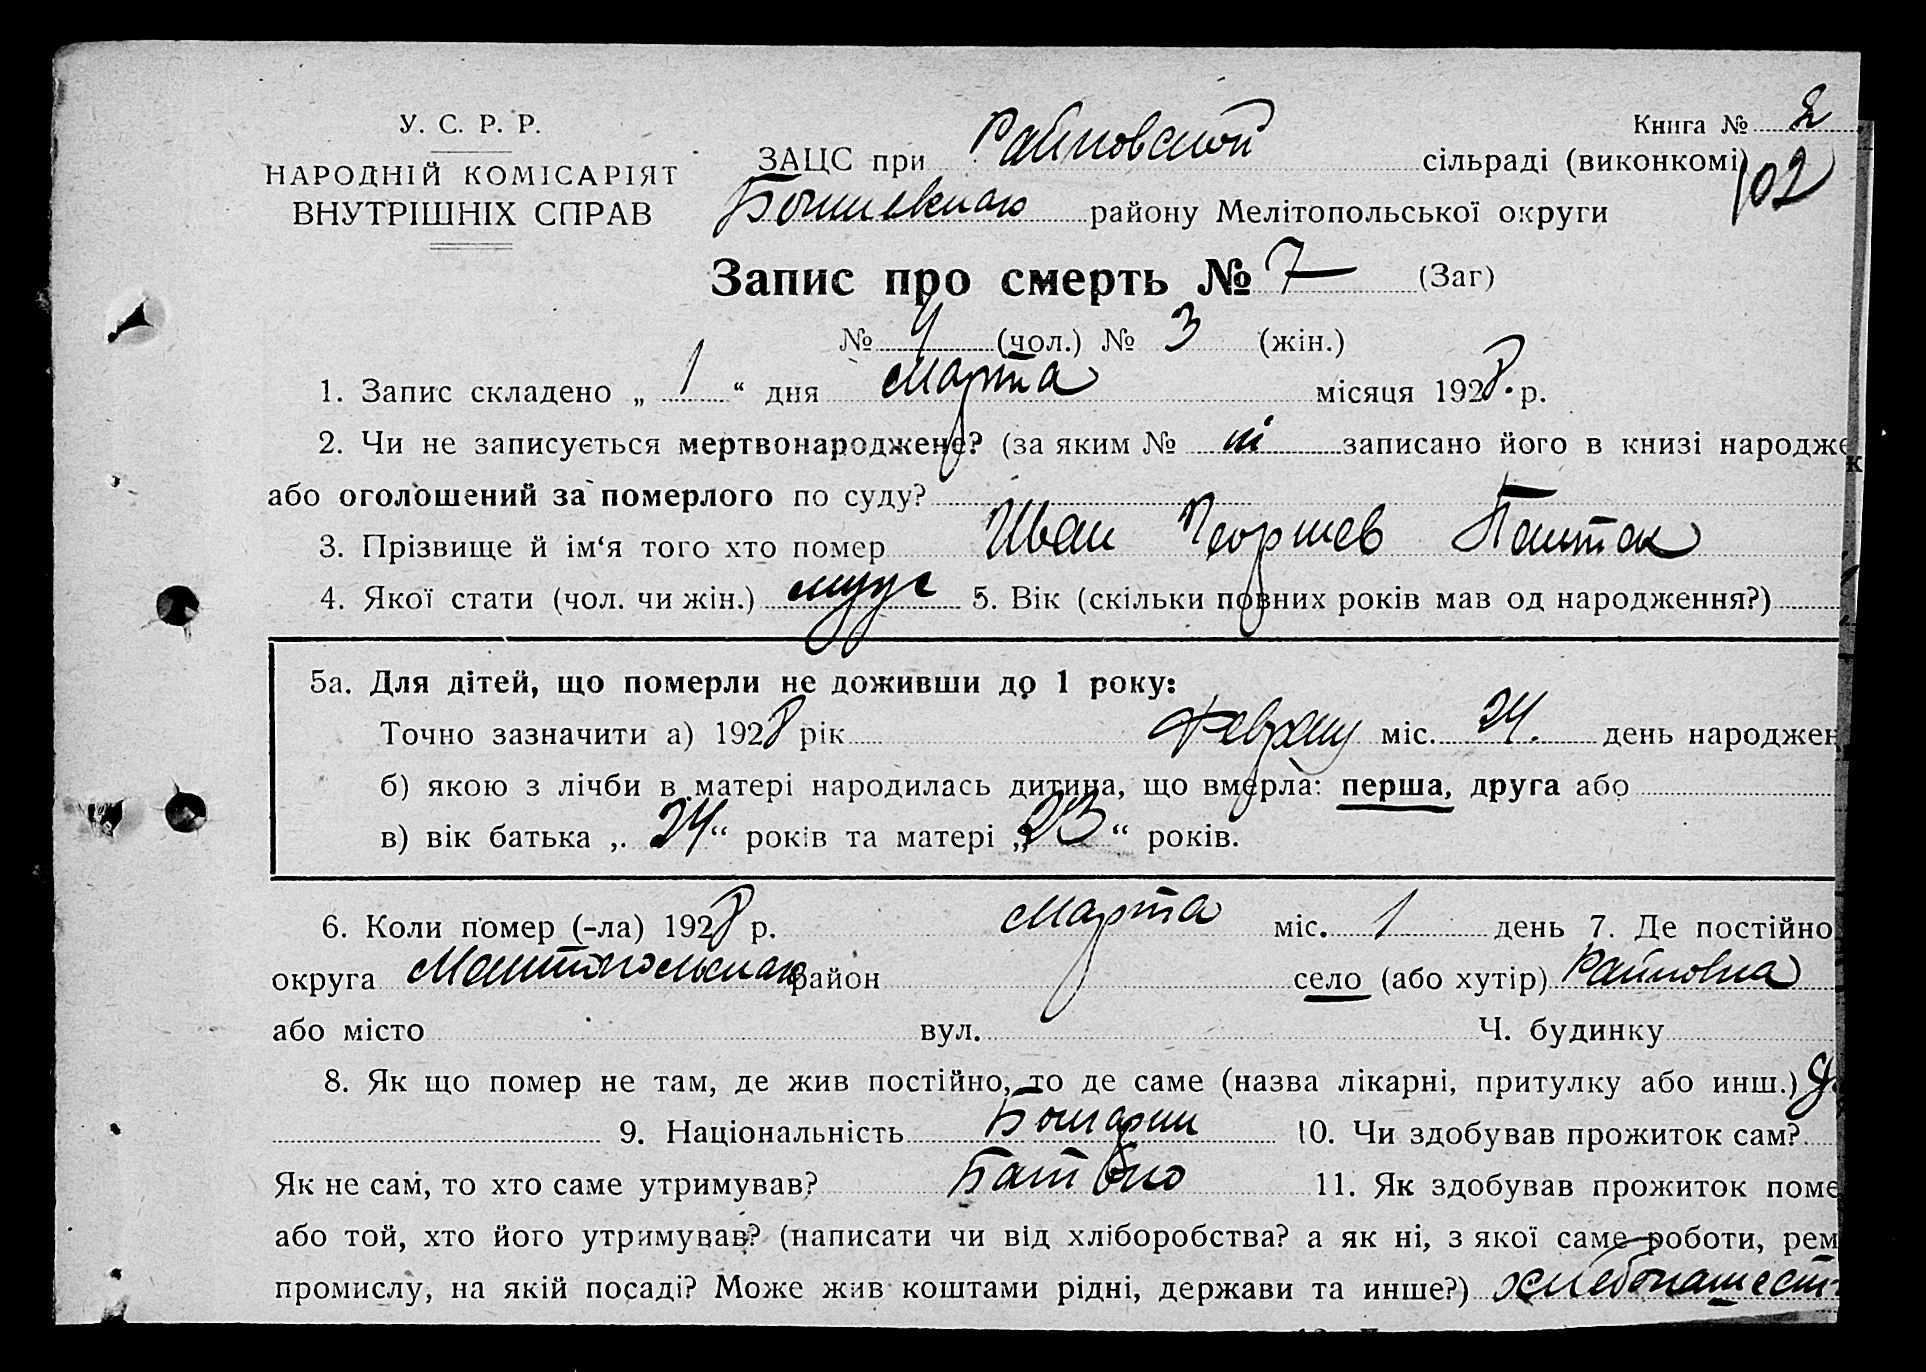 У. С. Р. Р.
НАРОДНІЙ КОМІСАРІЯТ
ВНУТРІШНІХ СПРАВ
Книга № 2
102
ЗАЦС при Райновской сільраді (виконкомі)
району Мелітопольської округи
Запис про смерть № 7 (Заг)
№ 4 (чол.) № 3 (жін.)
1. Запис складено „ 1 “ дня Марта місяця 1928 р.
2. Чи не записується мертвонароджене? (за яким № ні записано його в книзі народже
або оголошений за померлого по суду?
3. Прізвище й ім‘я того хто помер Иван Георгиев
4. Якої стати (чол. чи жін.) муж 5. Вік (скільки повних років мав од народження?)
5а. Для дітей, що померли не доживши до 1 року:
Точно зазначити а) 1928 рік Февраля міс. 24. день народжен
б) якою з лічби в матері народилась дитина, що вмерла: перша, друга або
в) вік батька „ 24 “ років та матері „ 23 “ років.
6. Коли помер (-ла) 1928 р. Марта міс. 1 день 7. Де постійно
округа район село (або хутір) Райновка
або місто вул. Ч. будинку
8. Як що помер не там, де жив постійно, то де саме (назва лікарні, притулку або инш.)
9. Національність 10. Чи здобував прожиток сам?
Як не сам, то хто саме утримував? Батько 11. Як здобував прожиток поме
або той, хто його утримував? (написати чи від хліборобства? а як ні, з якої саме роботи, рем
промислу, на якій посаді? Може жив коштами рідні, держави та инше?) хлебопашест